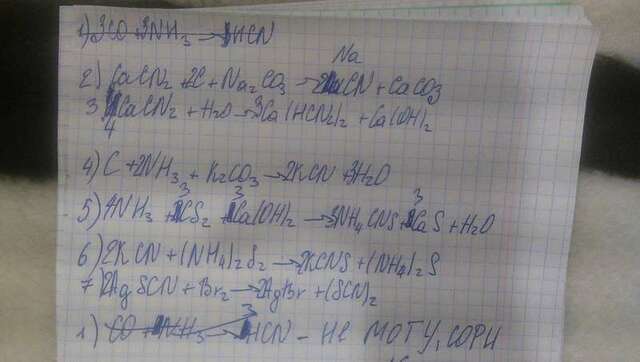 1) 3CO + 3NH3 → HCN
2) CaCN2 + 2C + Na2CO3 → 2NaCN + CaCO3
3 4CaCN2 + H2O → 3Ca(HCN2)2 + Ca(OH)2
4) C + 2NH3 + K2CO3 → 2KCN + 3H2O
5) 4NH3 + 3CS2 + 3Ca(OH)2 → 3NH4CNS + 3CaS + H2O
6) 2KCN + (NH4)2S2 → 2KCNS + (NH4)2S
7) 2AgSCN + Br2 → 2AgBr + (SCN)2
1) CO + NH3 → 3HCN – не могу, сори